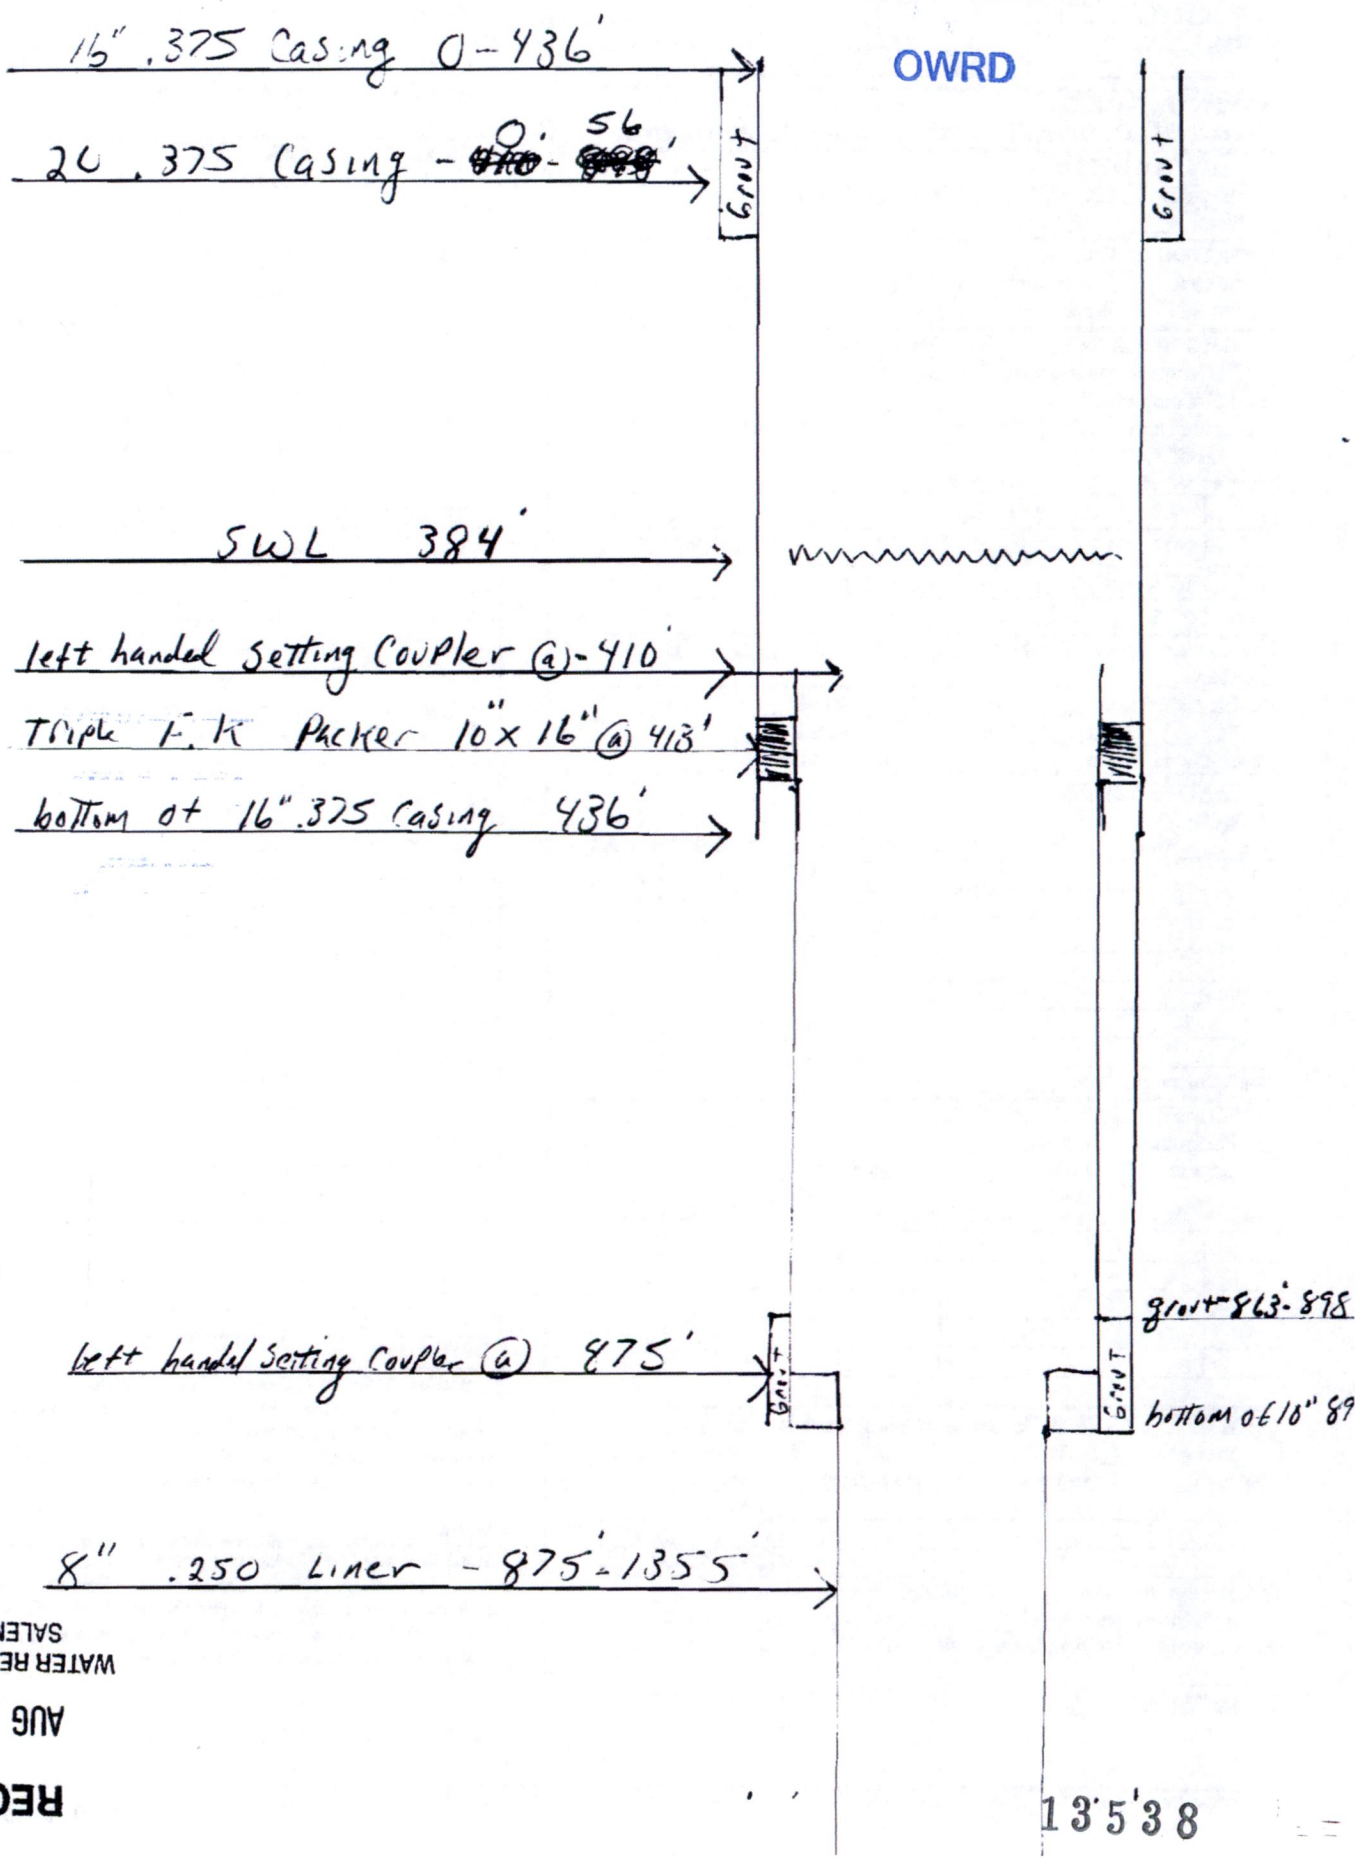 16" .375 Casing 0-436'
OWRD
0' 56
20 .375 Casing - - '
Grout
Grout
SWL 384'
left handed Setting Coupler @-410'
Triple F.K Packer 10" x 16" @ 413'
bottom of 16" .375 Casing 436'
grout-863'-898
Left handed Setting Coupler @ 875'
Grout
Grout
bottom of 10" 89
8" .250 Liner - 875'-1355'
SALE
WATER RE
AUG
REC
13538